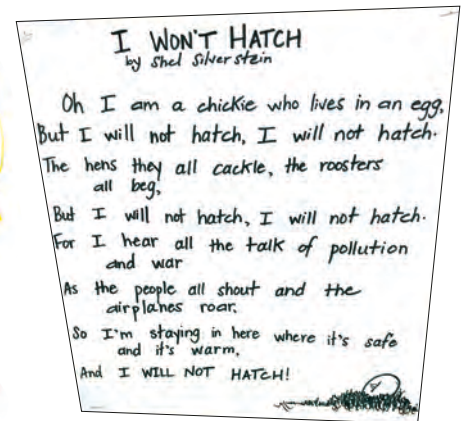 I WON'T HATCH
by Shel Silverstein
Oh I am a chickie who lives in an egg,
But I will not hatch, I will not hatch.
The hens they all cackle, the roosters
all beg,
But I will not hatch, I will not hatch.
For I hear all the talk of pollution
and war
As the people all shout and the
airplanes roar,
So I'm staying in here where it's safe
and it's warm,
And I WILL NOT HATCH!